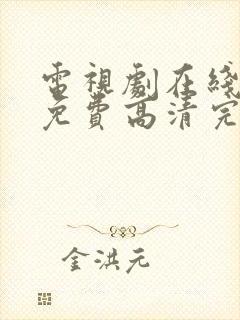 電視劇在綫
免費高清完
金洪元